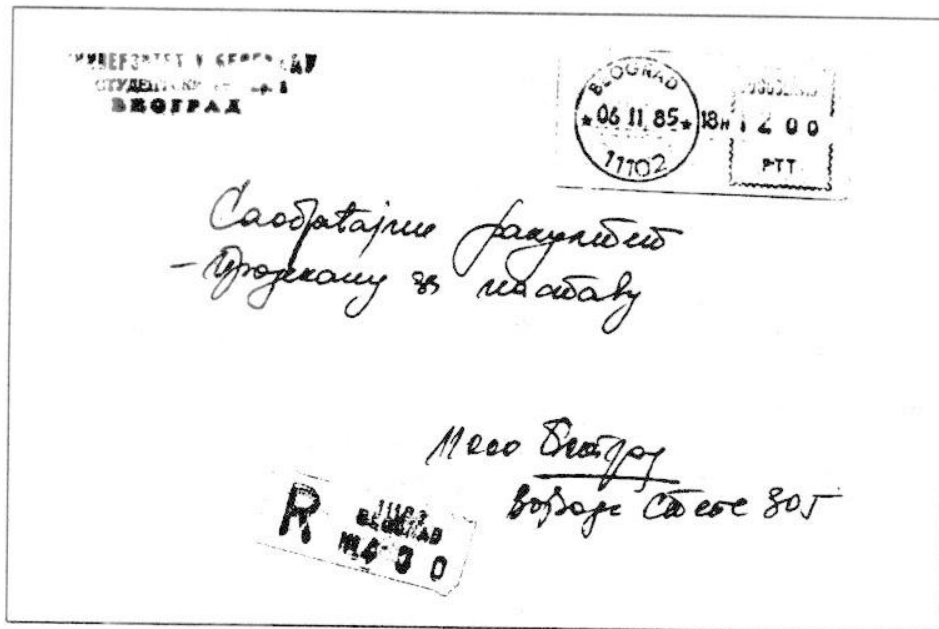 УНИВЕРЗИТЕТ У БЕОГРАДУ
СТУДЕНТСКИ
БЕОГРАД
BEOGRAD
* 06 11. 85 * 18н
11102
1 2 0 0
PTT
Саобраћајни факултет
- продекану за наставу
11000 Београд
Војводе Степе 305
R
11102
BEOGRAD